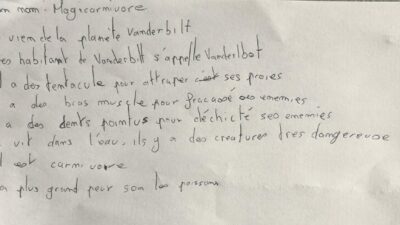 n nom. Magicarnivore
viem de la planete Vanderbilt
es habitant de Vanderbilt s'appelle Vanderlbot
l a des tentacule pour attraper ses proies
a des bras muscle pour fracassé ses enemies
a des dents pointus pour déchicté ses enemies
vit dans l'eau, ils y a des creatures tres dangereuse
l est carnivore
a plus grand peur son les poissons